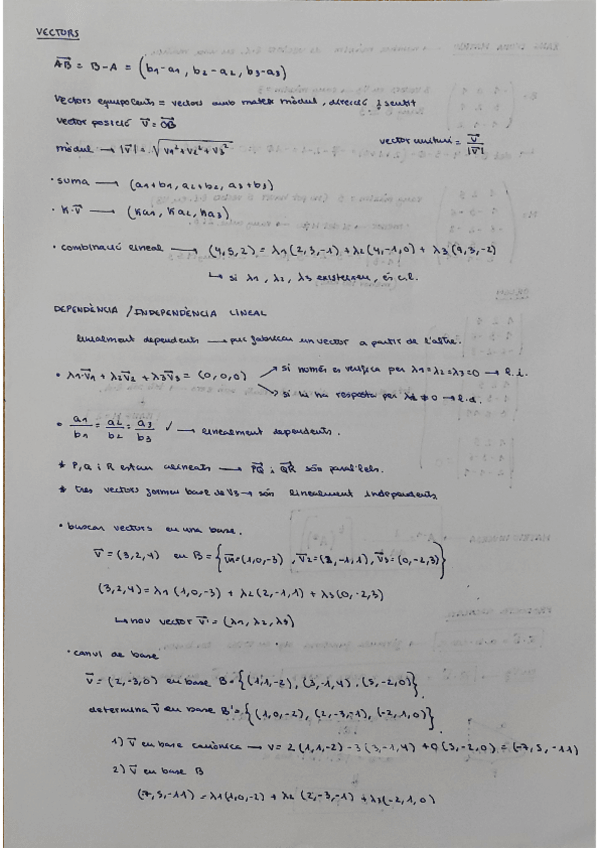 VECTORS
AB = B-A = (b1-a1, b2-a2, b3-a3)
Vectors equipolents = vectors amb mateix mòdul, direcció i sentit
vector posició v = OB
mòdul → |v| = √v1²+v2²+v3²
vector unitari = v/|v|
• suma → (a1+b1, a2+b2, a3+b3)
• K·v → (Ka1, Ka2, Ka3)
• combinació lineal → (4,5,2) = λ1(2,3,-1) + λ2(4,-1,0) + λ3(9,3,-2)
↳ si λ1, λ2, λ3 existeixen, és c.l.
DEPENDÈNCIA / INDEPENDÈNCIA LINEAL
linealment dependents → puc fabricar un vector a partir de l'altre.
• λ1·v1 + λ2v2 + λ3v3 = (0,0,0)
si només es verifica per λ1=λ2=λ3=0 → l.i.
si hi ha resposta per λ ≠ 0 → l.d.
• a1/b1 = a2/b2 = a3/b3 ✓ → linealment dependents.
* P, Q i R estan alineats → PQ i QR són paral·lels.
* tres vectors formen base de V3 → són linealment independents
• buscar vectors en una base.
v = (3,2,4) en B = {v1=(1,0,-3), v2=(2,-1,1), v3=(0,-2,3)}
(3,2,4) = λ1(1,0,-3) + λ2(2,-1,1) + λ3(0,-2,3)
↳ nou vector v = (λ1, λ2, λ3)
• canvi de base
v = (2,-3,0) en base B = {(1,1,-2), (3,-1,4), (5,-2,0)}
determina v en base B' = {(1,0,-2), (2,-3,-1), (-2,1,0)}
1) v en base canònica → v = 2(1,1,-2) - 3(3,-1,4) + 0(5,-2,0) = (-7,5,-11)
2) v en base B
(-7,5,-11) = λ1(1,0,-2) + λ2(2,-3,-1) + λ3(-2,1,0)